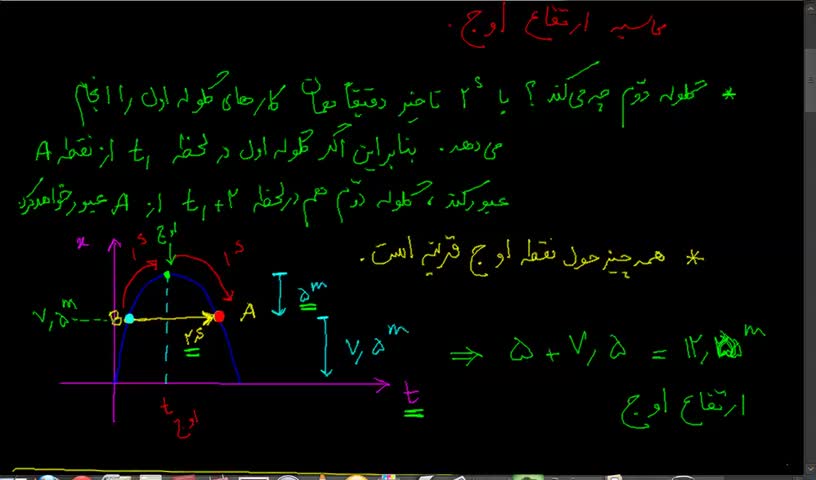 محاسبه ارتفاع اوج.
* گلوله دوم چه می‌کند؟ با ۲s تاخیر دقیقاً همان کارهای گلوله اول را انجام
می‌دهد. بنابراین اگر گلوله اول در لحظه t₁ از نقطه A
عبور کند، گلوله دوم هم در لحظه t₁+۲ از A عبور خواهد کرد
* همه چیز حول نقطه اوج قرینه است.
x
اوج
۱s
۱s
۵m
۷٫۵m
B
A
۲s
۷٫۵m
⇒ ۵ + ۷٫۵ = ۱۲٫۵m
ارتفاع اوج
t
t اوج